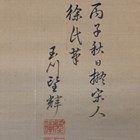 丙子秋日擬宋人
徐氏筆
玉川望輝